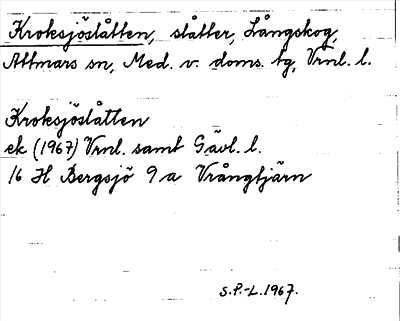 Kroksjöslåtten, slåtter, Långskog,
Attmars sn, Med. v. doms. tg, Vrnl. l.
Kroksjöslåtten
ek (1967) Vrnl. samt Gävl. l.
16 H Bergsjö 9 a Vrångtjärn
S.P.-L. 1967.